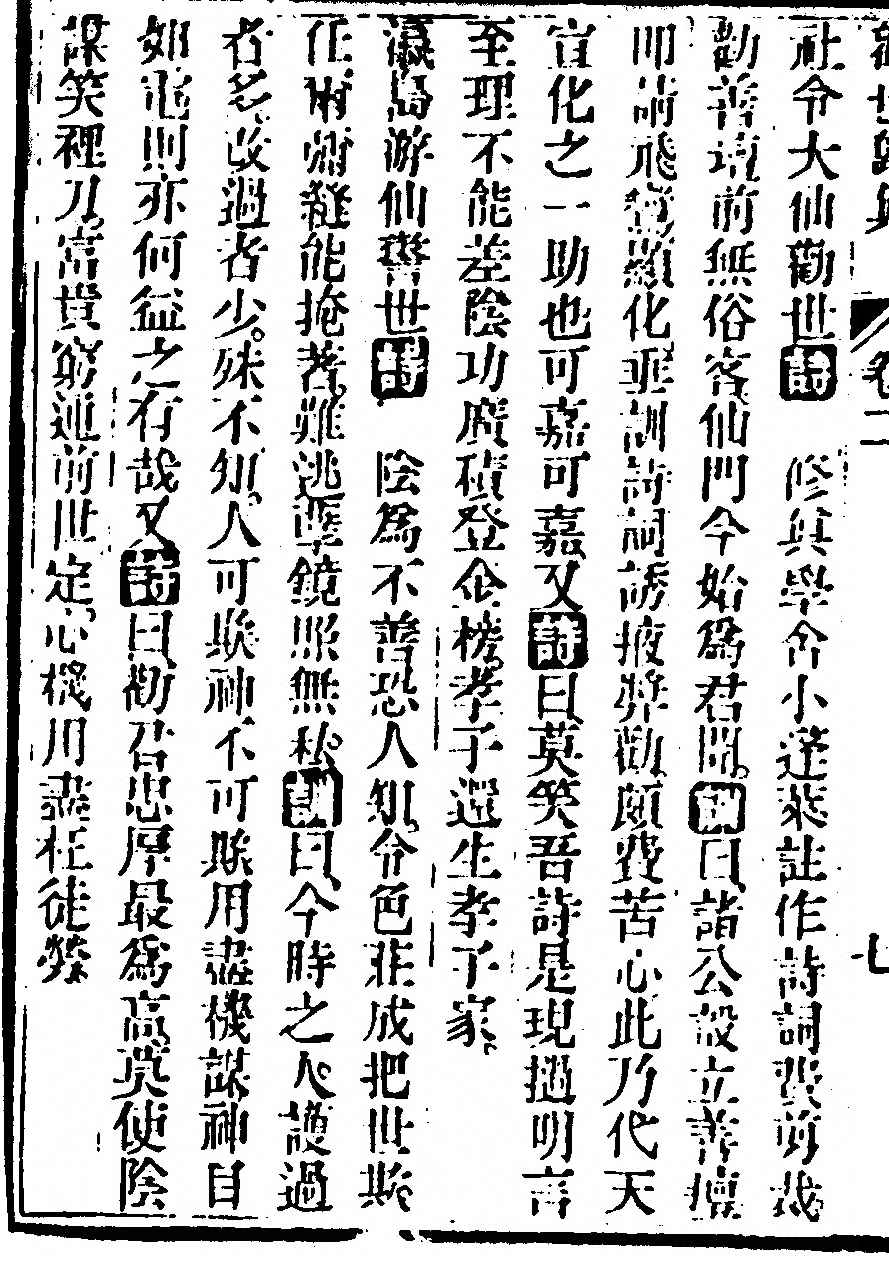 卷二 七
社令大仙勸世詩 修眞學舍小蓬萊註作詩詞費剪裁
勸善壇前無俗客仙門今始爲君開訓曰諸公設立善壇
叩請飛鸞顯化垂訓詩詞誘掖奬勸頗費苦心此乃代天
宣化之一助也可嘉可嘉又詩曰莫笑吾詩是現撾明言
至理不能差陰功廣積登金榜孝子還生孝子家
瀛島游仙警世詩 陰爲不善恐人知令色非成把世欺
任爾彌縫能掩著難逃孽鏡照無私訓曰今時之人護過
者多改過者少殊不知人可欺神不可欺用盡機謀神目
如電則亦何益之有哉又詩曰勸君忠厚最爲高莫使陰
謀笑裡刀富貴窮通前世定心機用盡枉徒勞